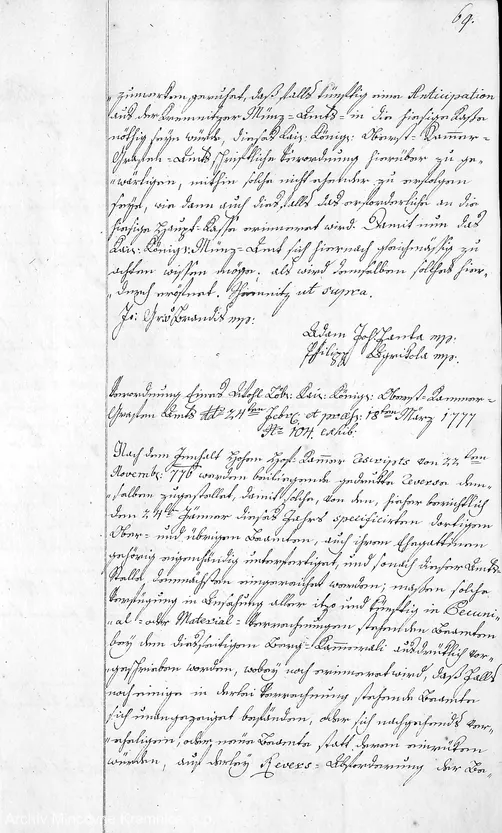 69.
zumerken geruhet, daß, falls künftig eine Anticipation
aus der Kremnitzer Münz=Amts= in die hiesige Kaße
nöthig seyn würde, dieses Kais: Königl: Oberst=Kammer=
Grafen=Amts schriftliche Verordnung hierüber zu ge=
wärtigen, mithin solche nicht ehender zu erfolgen
seye, wie dann auch dießfalls das erforderliche an die
hiesige Haupt=Kasse erinneret wird. Damit nun das
Kais: Königl: Münz=Amt sich hiernach gleichmässig zu
achten wissen möge, als wird demselben solches hier=
durch eröfnet. Schemnitz ut supra.
Jo: Gr: Brandis mp.
Adam Joh: Zanka mp.
Philipp Agrikola mp.
Verordnung Eines Wohl Löbl: Kais: Königl: Oberst=Kammer=
Grafen Amts ddto 24ten Febr: et praes: 18ten März 1777
No 104. exhib:
Nach dem Innhalt hohen Hof=Kammer Rescripts von 22ten
Novembr: 776 werden beiliegende gedrukte Reverse dem=
selben zugestellet, damit solche, von den, hieher berichtlich
den 24ten Jänner dieses Jahrs specificirten dortigen
Ober= und übrigen Beamten, auch ihren Ehegattinnen
gehörig eigenhändig unterfertiget, und sonach dieser Amts=
Stelle demnächsten eingereichet werden; massen solche
Verfügung in Ansehung aller itzo und künftig in Pecuni=
al= oder Material=Verrechnungen stehenden Beamten
bey dem diesseitigen Berg=Kammerali ausdrüklich vor=
geschrieben worden, wobey noch erinneret wird, daß, falls
noch einige in derlei Verrechnung stehende Beamte
sich unangezeiget befänden, oder sich nachgehends ver=
ehelichen, oder neue Beamte statt deren einrüken
werden, auf derley Revers=Abforderung der Be=
Archiv Mincovne Kremnica